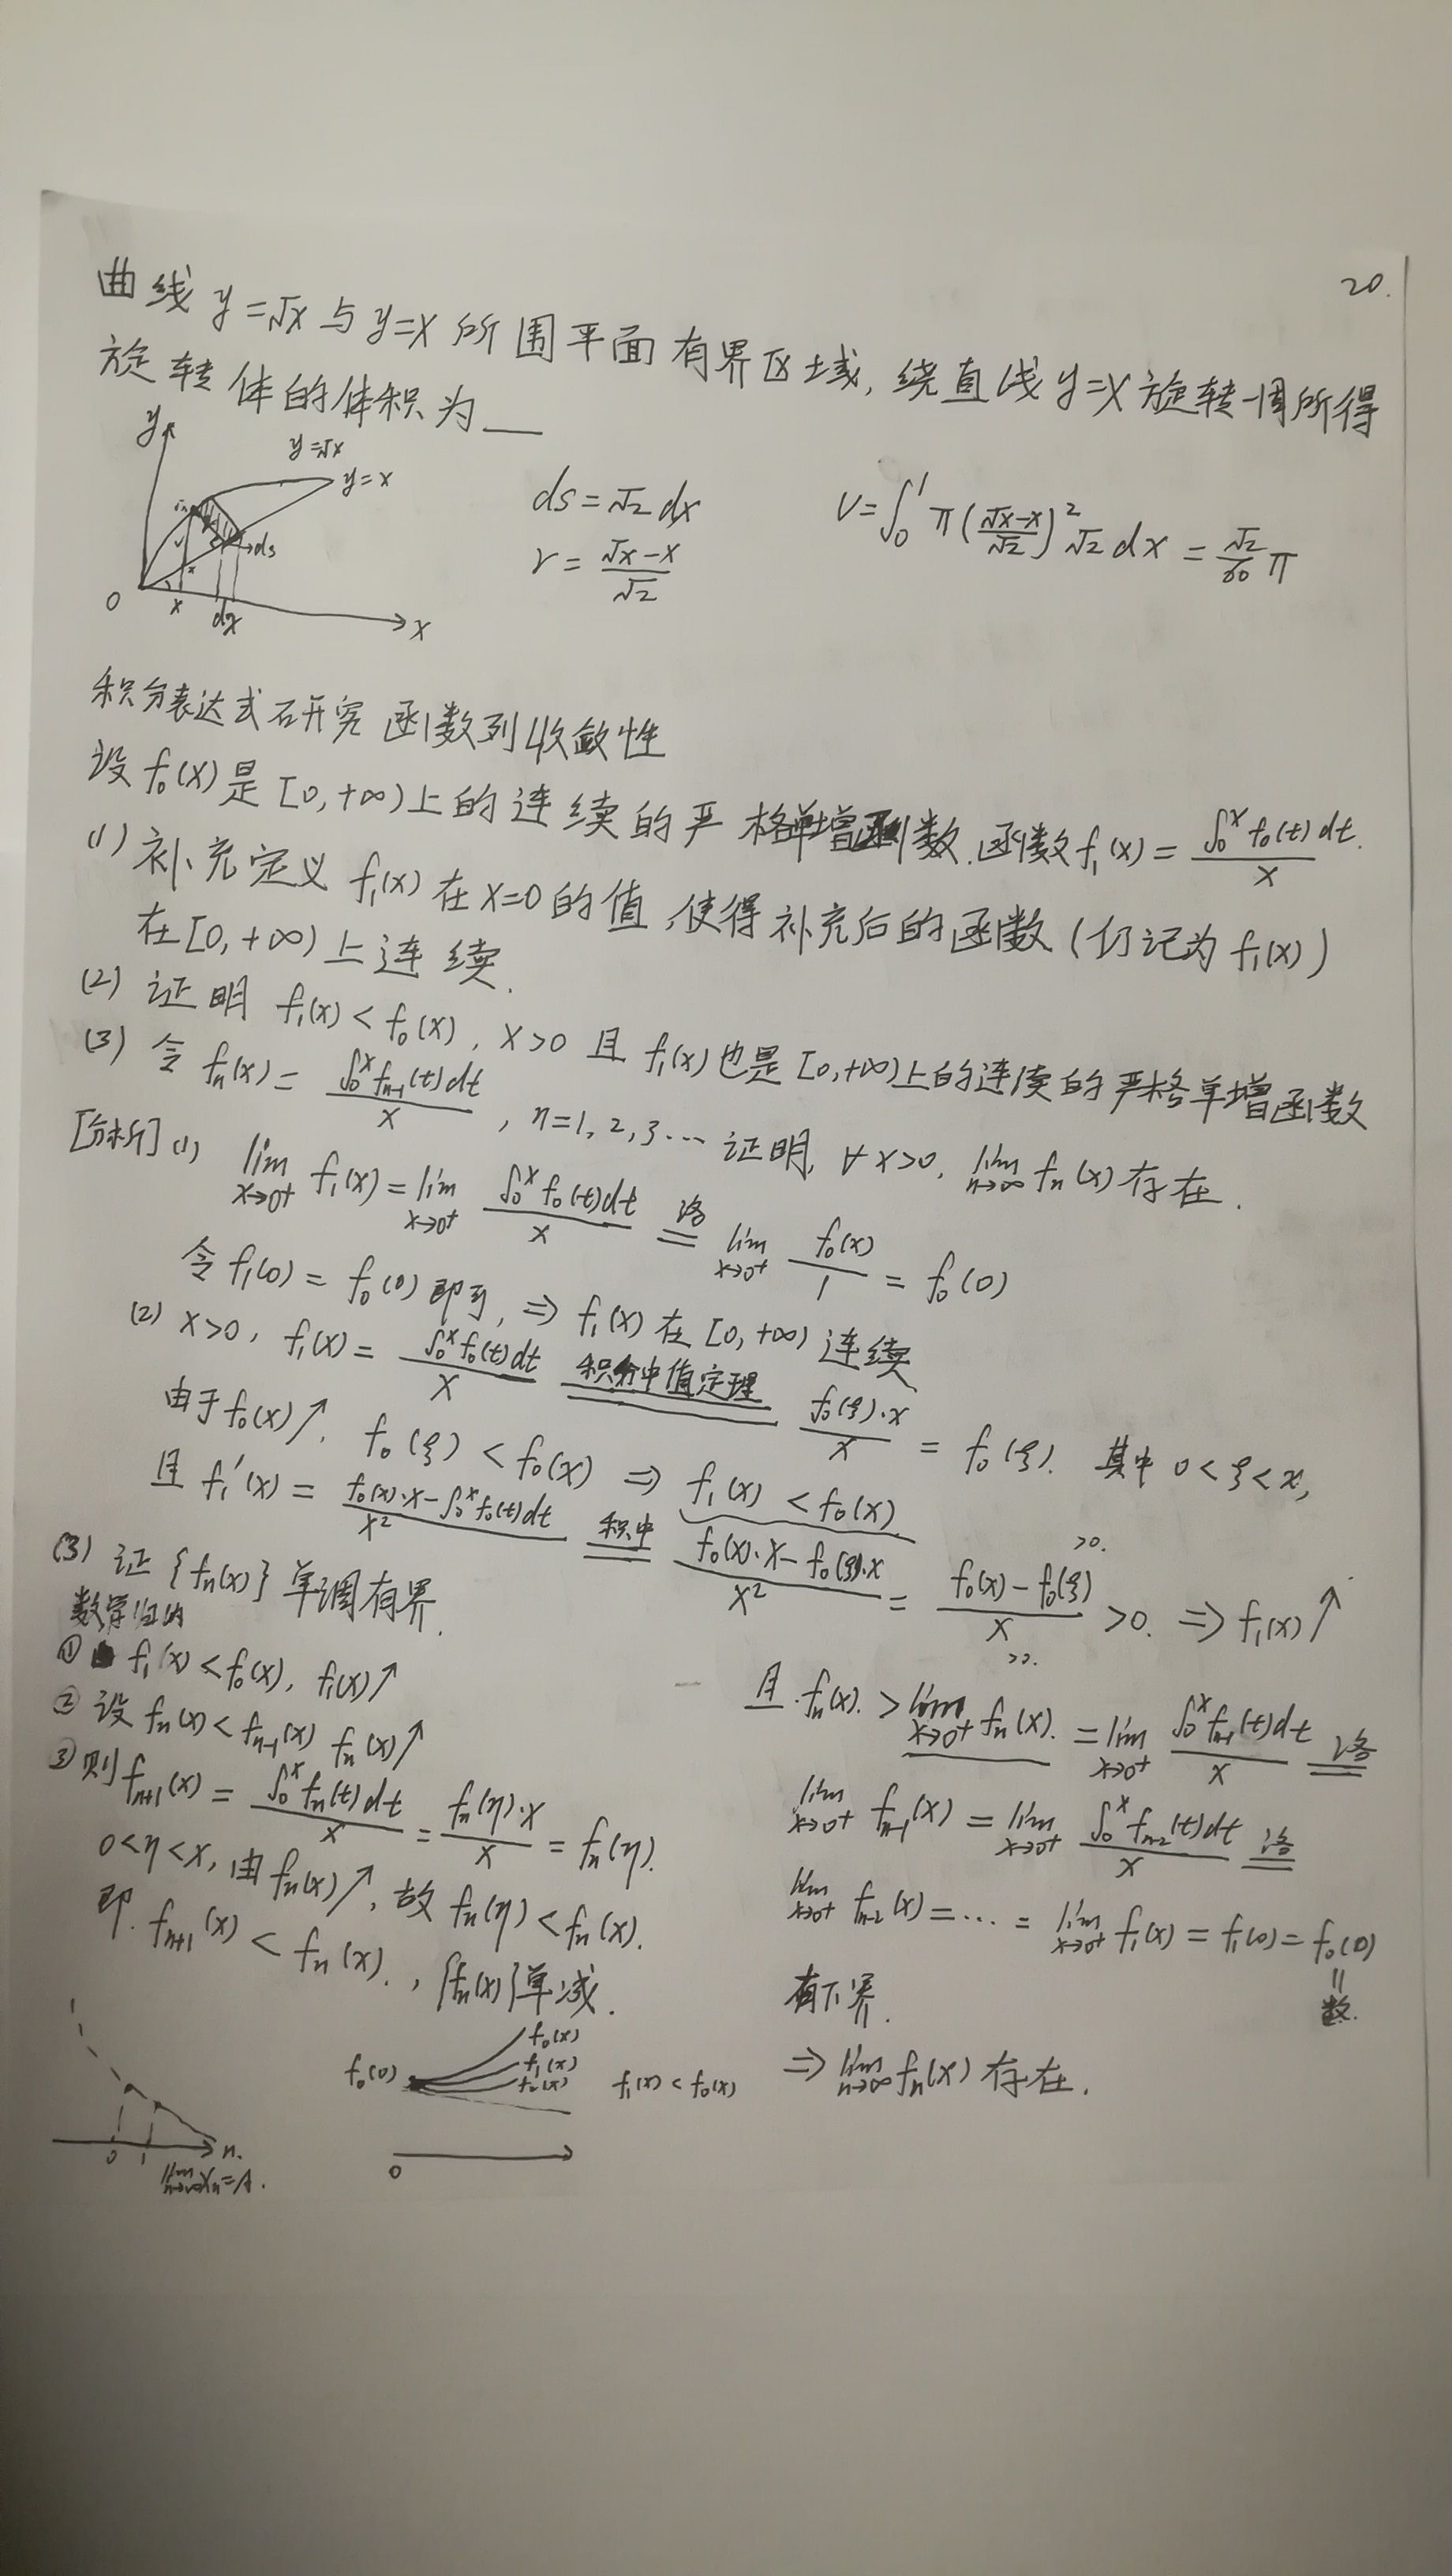 20.
曲线 y=√x 与 y=x 所围平面有界区域, 绕直线 y=x 旋转一周所得
旋转体的体积为__
y
y=√x
y=x
ds
O
x
dx
x
ds=√2 dx
r = (√x-x)/√2
V=∫₀¹ π((√x-x)/√2)² √2 dx = (√2/60)π
积分表达式研究函数列收敛性
设 f₀(x) 是 [0,+∞) 上的连续的严格单增函数. 函数 f₁(x) = ∫₀ˣ f₀(t)dt / x.
(1) 补充定义 f₁(x) 在 x=0 的值, 使得补充后的函数 (仍记为 f₁(x))
在 [0,+∞) 上连续.
(2) 证明 f₁(x) < f₀(x), x>0 且 f₁(x) 也是 [0,+∞) 上的连续的严格单增函数
(3) 令 fₙ(x) = ∫₀ˣ fₙ₋₁(t)dt / x, n=1,2,3… 证明, ∀x>0, lim n→∞ fₙ(x) 存在.
[分析] (1) lim x→0⁺ f₁(x) = lim x→0⁺ ∫₀ˣ f₀(t)dt / x 洛= lim x→0⁺ f₀(x)/1 = f₀(0)
令 f₁(0) = f₀(0) 即可, ⇒ f₁(x) 在 [0,+∞) 连续
(2) x>0, f₁(x) = ∫₀ˣ f₀(t)dt / x 积分中值定理= f₀(ξ)·x / x = f₀(ξ). 其中 0<ξ<x,
由于 f₀(x)↗, f₀(ξ) < f₀(x) ⇒ f₁(x) < f₀(x)
且 f₁'(x) = (f₀(x)·x - ∫₀ˣ f₀(t)dt) / x² 积中= (f₀(x)·x - f₀(ξ)·x) / x² = (f₀(x) - f₀(ξ)) / x >0. ⇒ f₁(x)↗
>0.
>0.
(3) 证 {fₙ(x)} 单调有界.
数学归纳
① f₁(x) < f₀(x), f₁(x)↗
② 设 fₙ(x) < fₙ₋₁(x) fₙ(x)↗
③ 则 fₙ₊₁(x) = ∫₀ˣ fₙ(t)dt / x = fₙ(η)·x / x = fₙ(η).
0<η<x, 由 fₙ(x)↗, 故 fₙ(η) < fₙ(x).
即. fₙ₊₁(x) < fₙ(x)., {fₙ(x)} 单减.
且. fₙ(x). > lim x→0⁺ fₙ(x). = lim x→0⁺ ∫₀ˣ fₙ₋₁(t)dt / x 洛=
lim x→0⁺ fₙ₋₁(x) = lim x→0⁺ ∫₀ˣ fₙ₋₂(t)dt / x 洛=
lim x→0⁺ fₙ₋₂(x) = … = lim x→0⁺ f₁(x) = f₁(0) = f₀(0)
||
数.
有下界.
⇒ lim n→∞ fₙ(x) 存在.
0
1
n.
lim n→∞ xₙ=A.
f₀(0)
f₀(x)
f₁(x)
f₂(x)
f₁(x) < f₀(x)
0